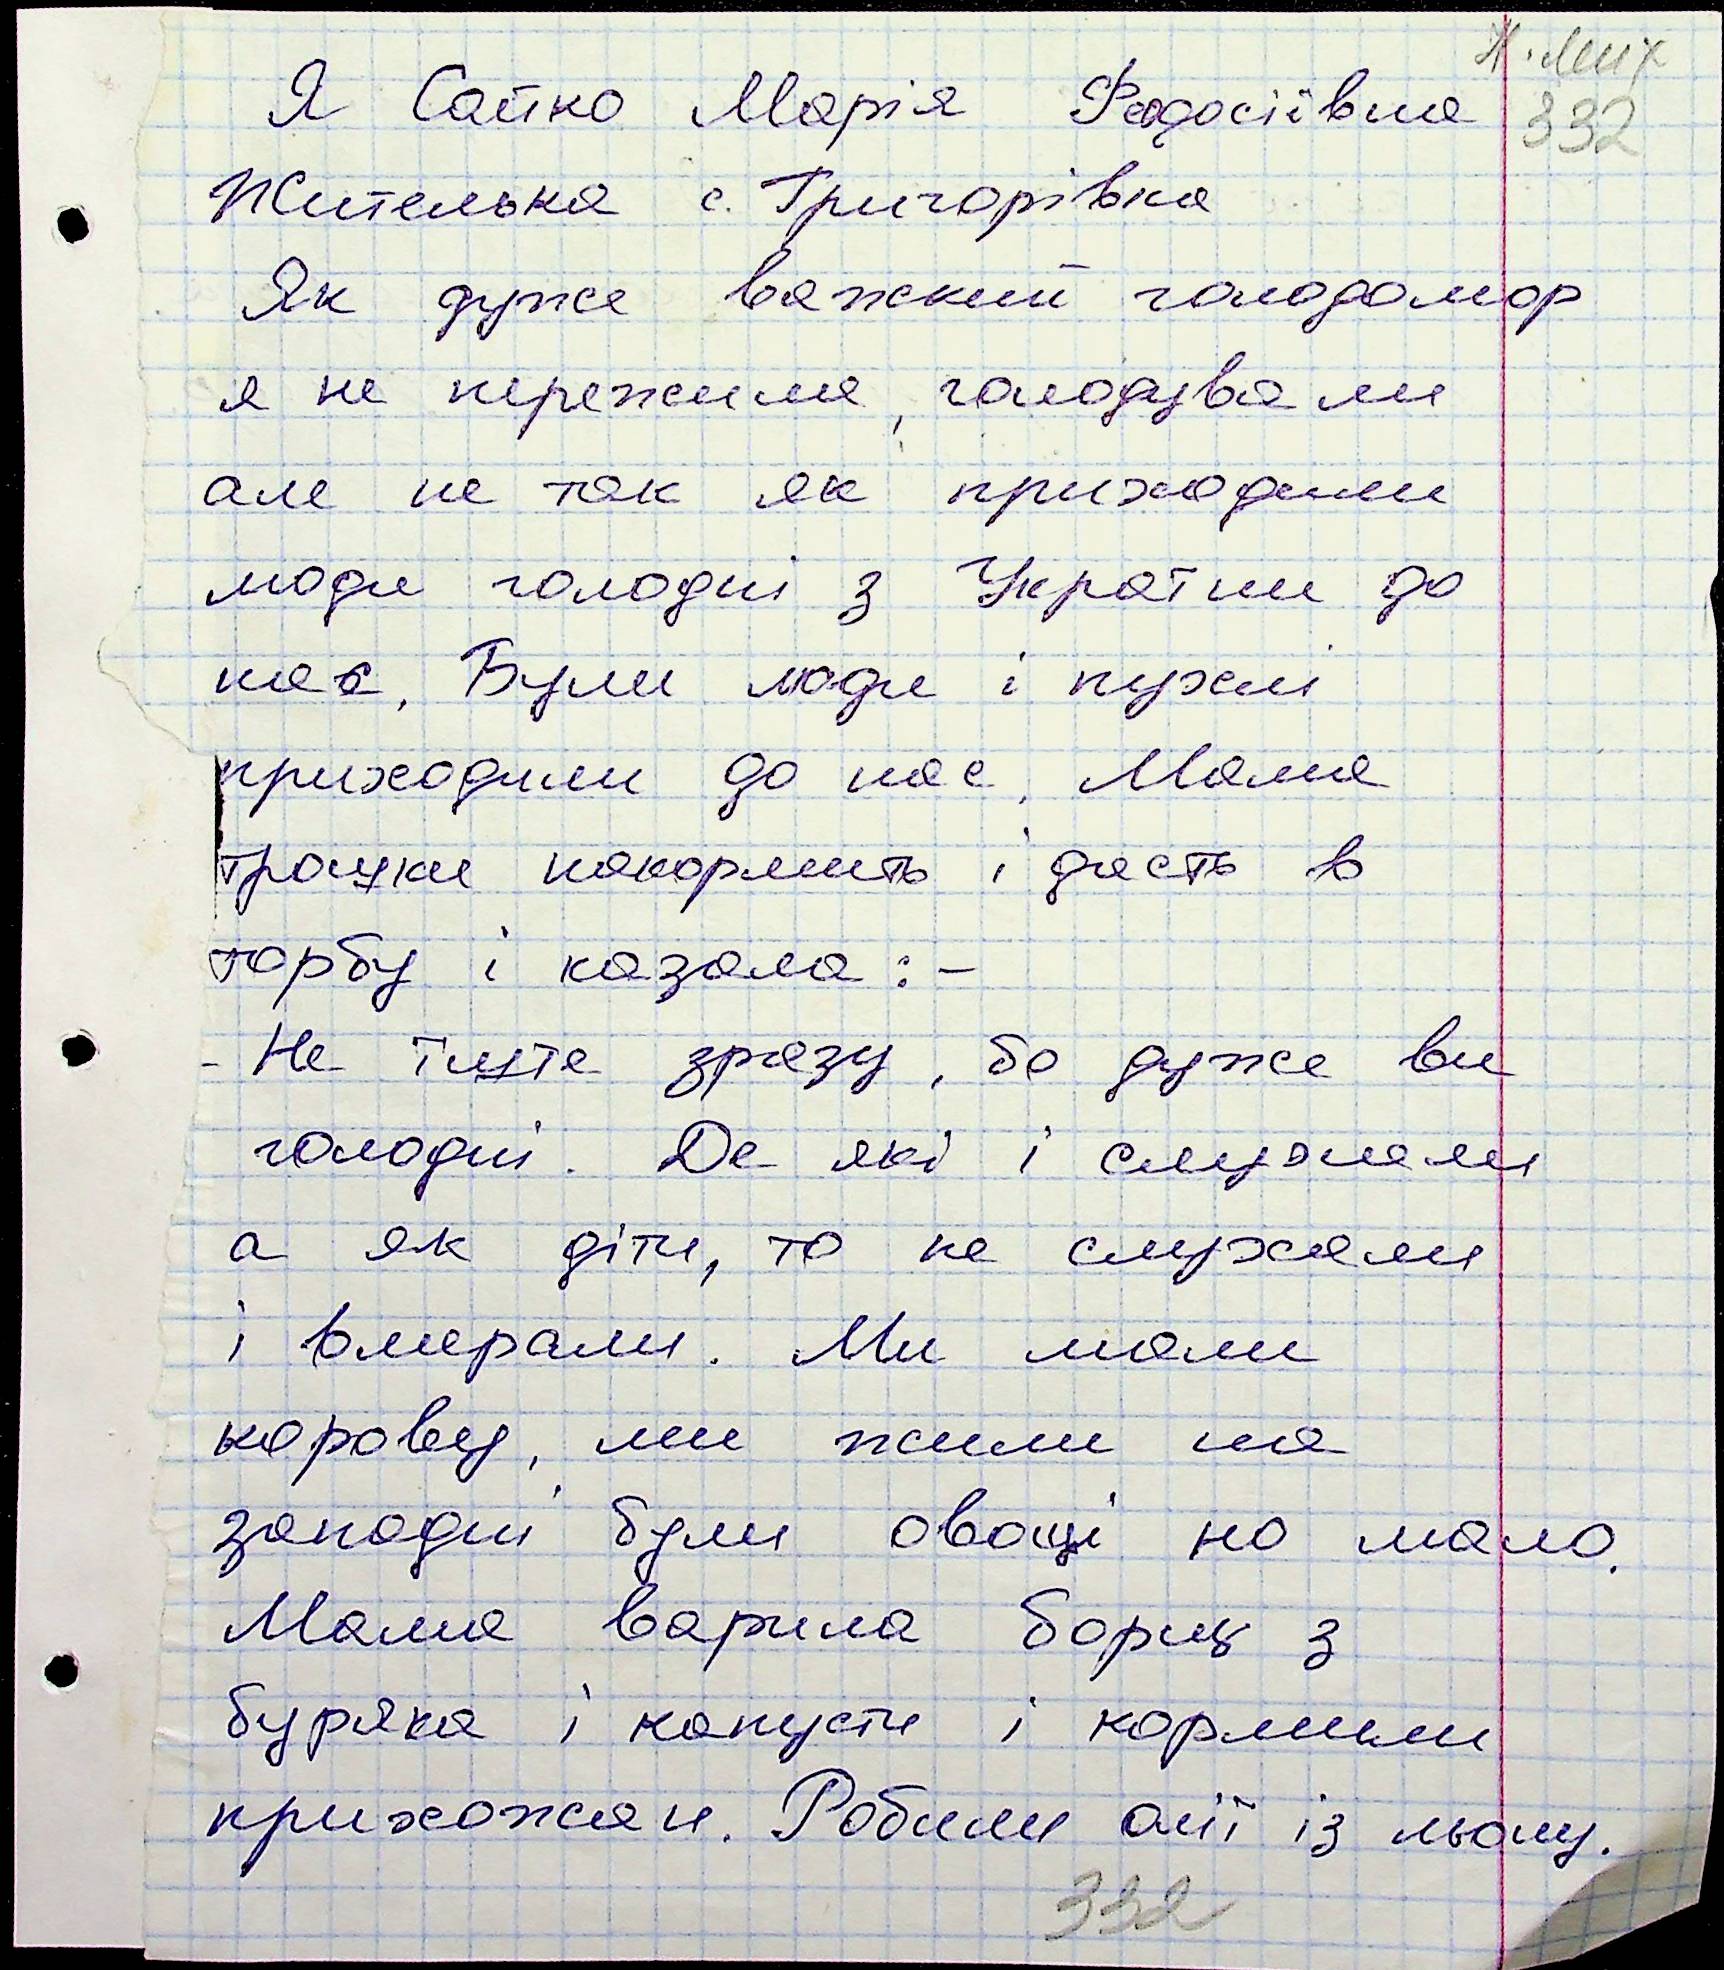 332
Я Сайко Марія Федосіївна
Жителька с. Григорівка
Як дуже важкий голодомор
я не пережила, голодували
але не так як приходили
люди голодні з України до
нас. Були люди і пухлі
приходили до нас. Мама
трошки накормить і дасть в
торбу і казала: -
- Не їжте зразу, бо дуже ви
голодні. Де які і слухали
а як діти, то не слухали
і вмирали. Ми мали
корову, ми жили на
западні були овощі но мало.
Мама варила борщ з
буряка і капусти і кормили
прихожан. Робили олії із льону.
332